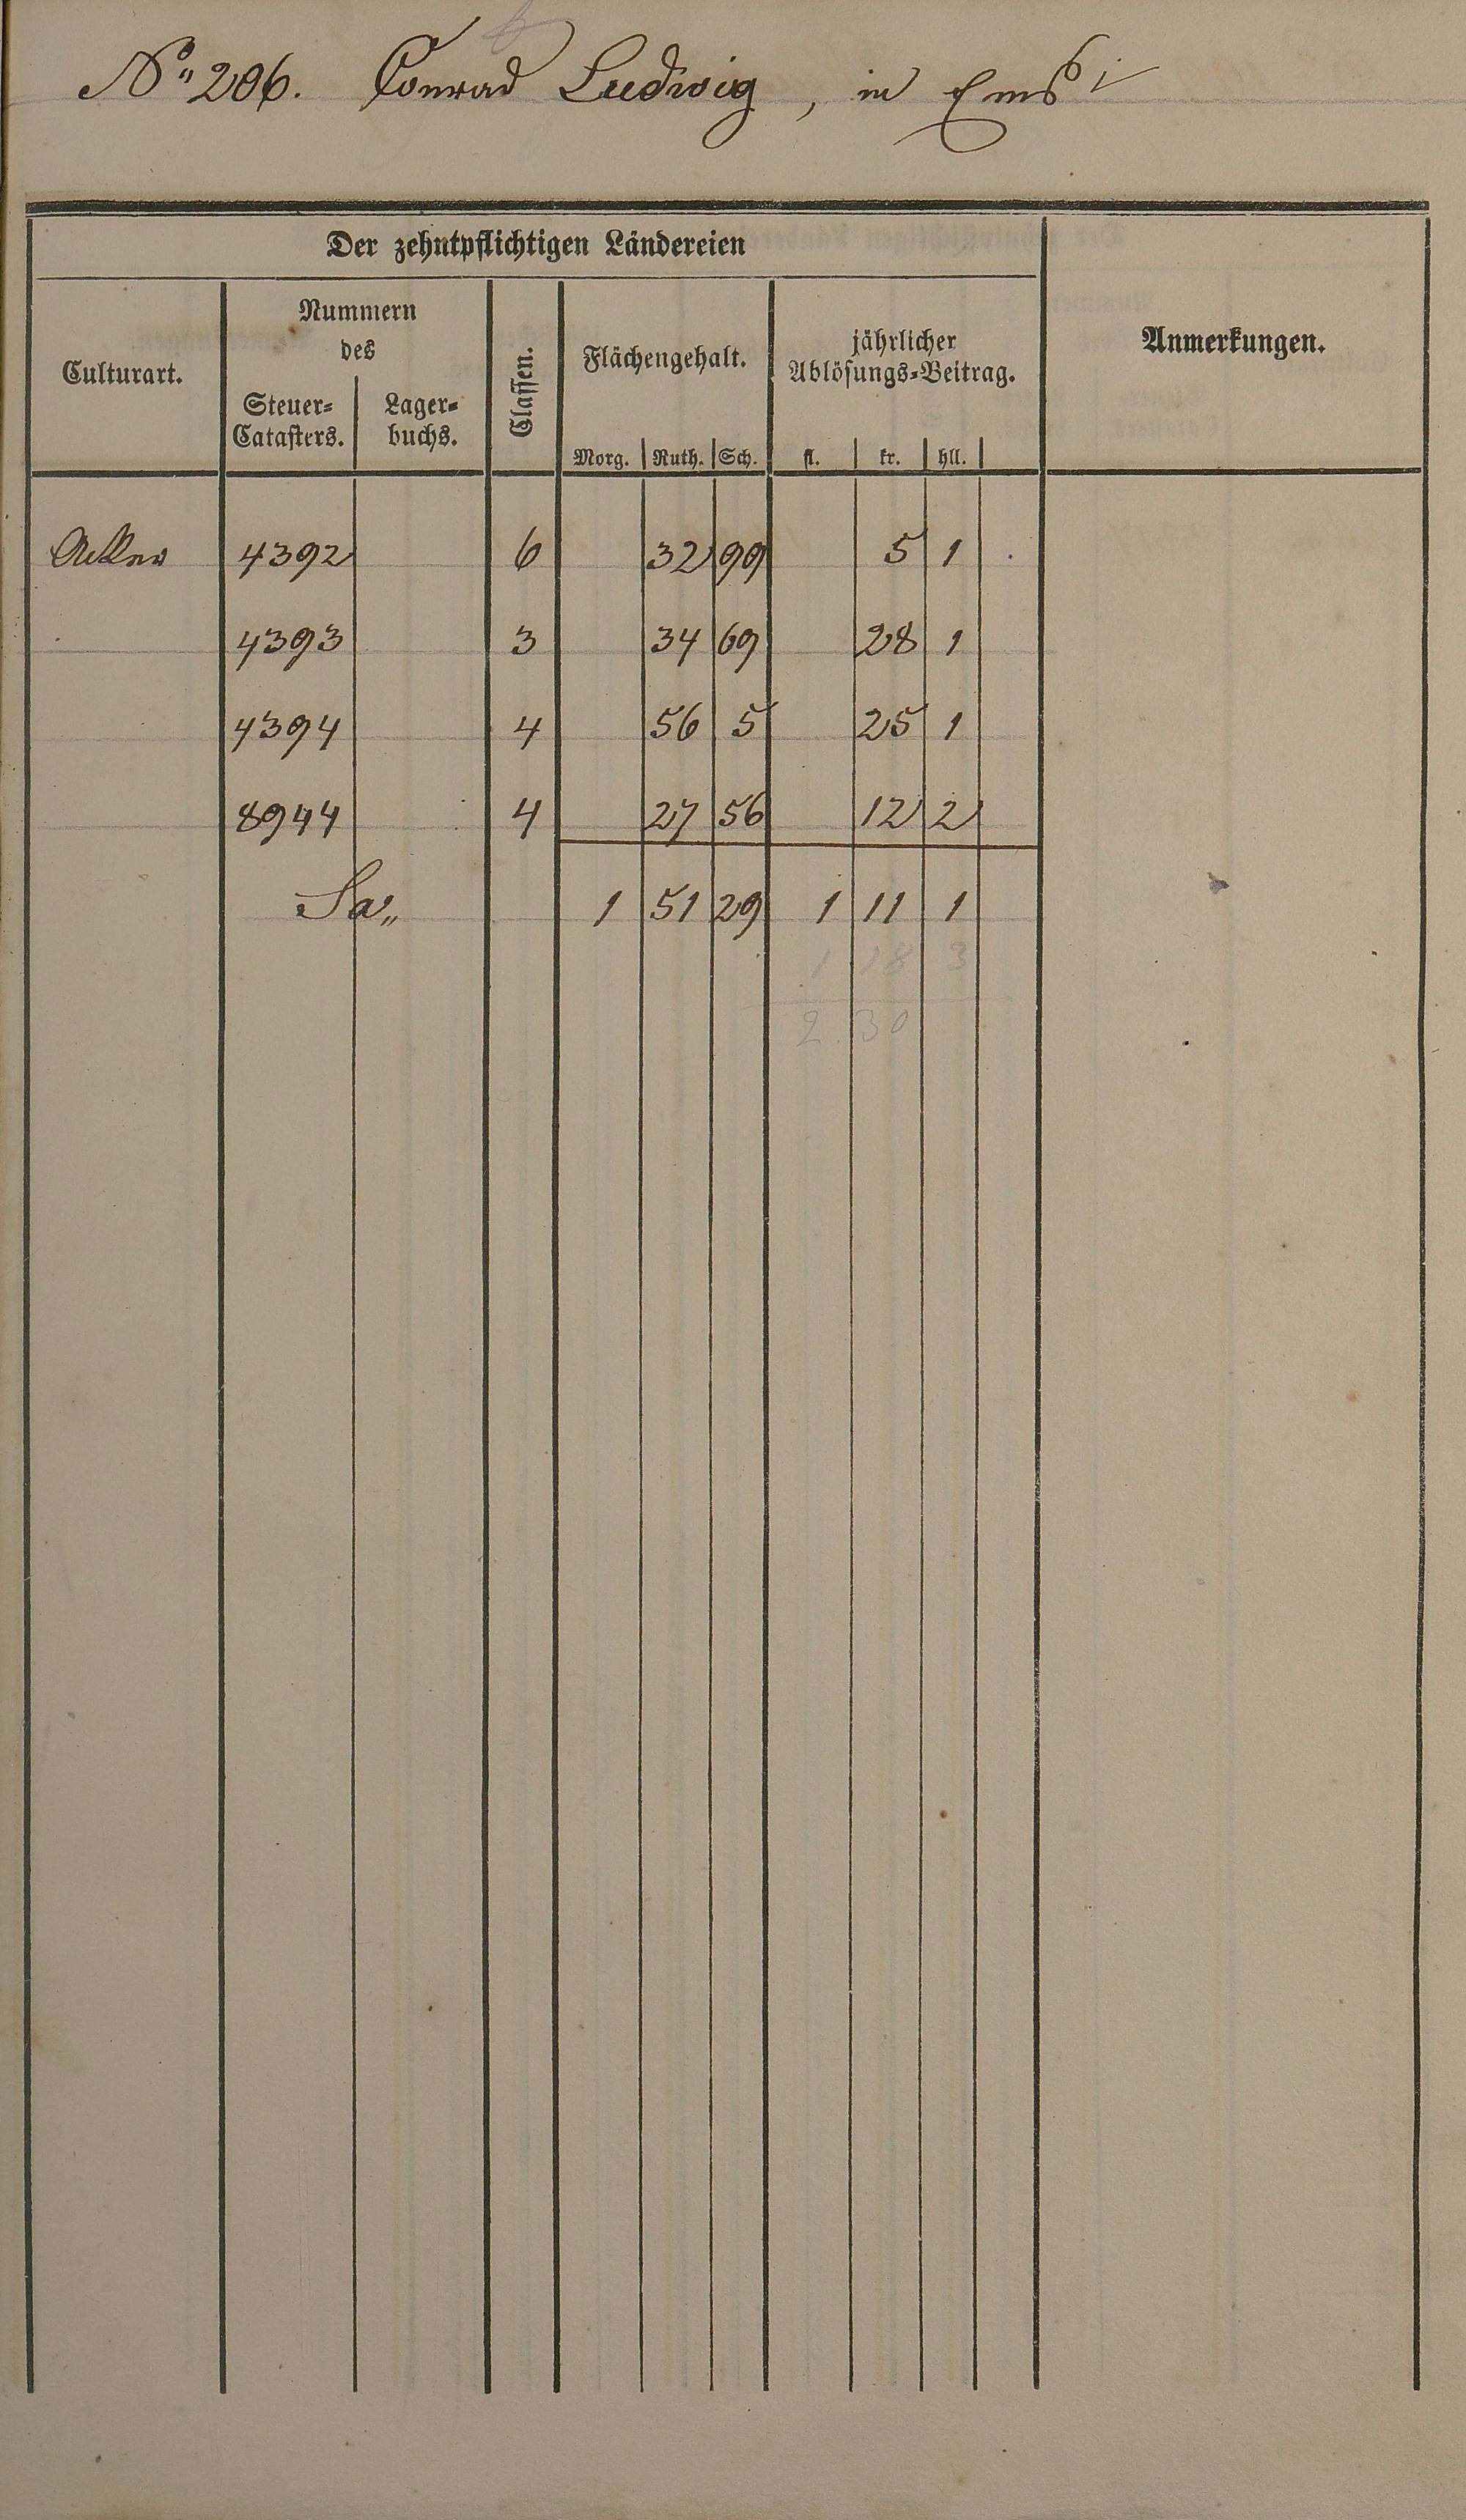 No 206. Conrad Ludwig, in Ems
Der zehntpflichtigen Ländereien
Culturart.
Nummern
des
Steuer=
Catasters.
Lager=
buchs.
Classen.
Flächengehalt.
Morg. Ruth. Sch.
jährlicher
Ablösungs=Beitrag.
fl. kr. hll.
Anmerkungen.
Acker 4392 6 32 99 5 1
4393 3 34 69 28 1
4394 4 56 5 25 1
8944 4 27 56 12 2
Sa" 1 51 29 1 11 1
1 18 3
2. 30